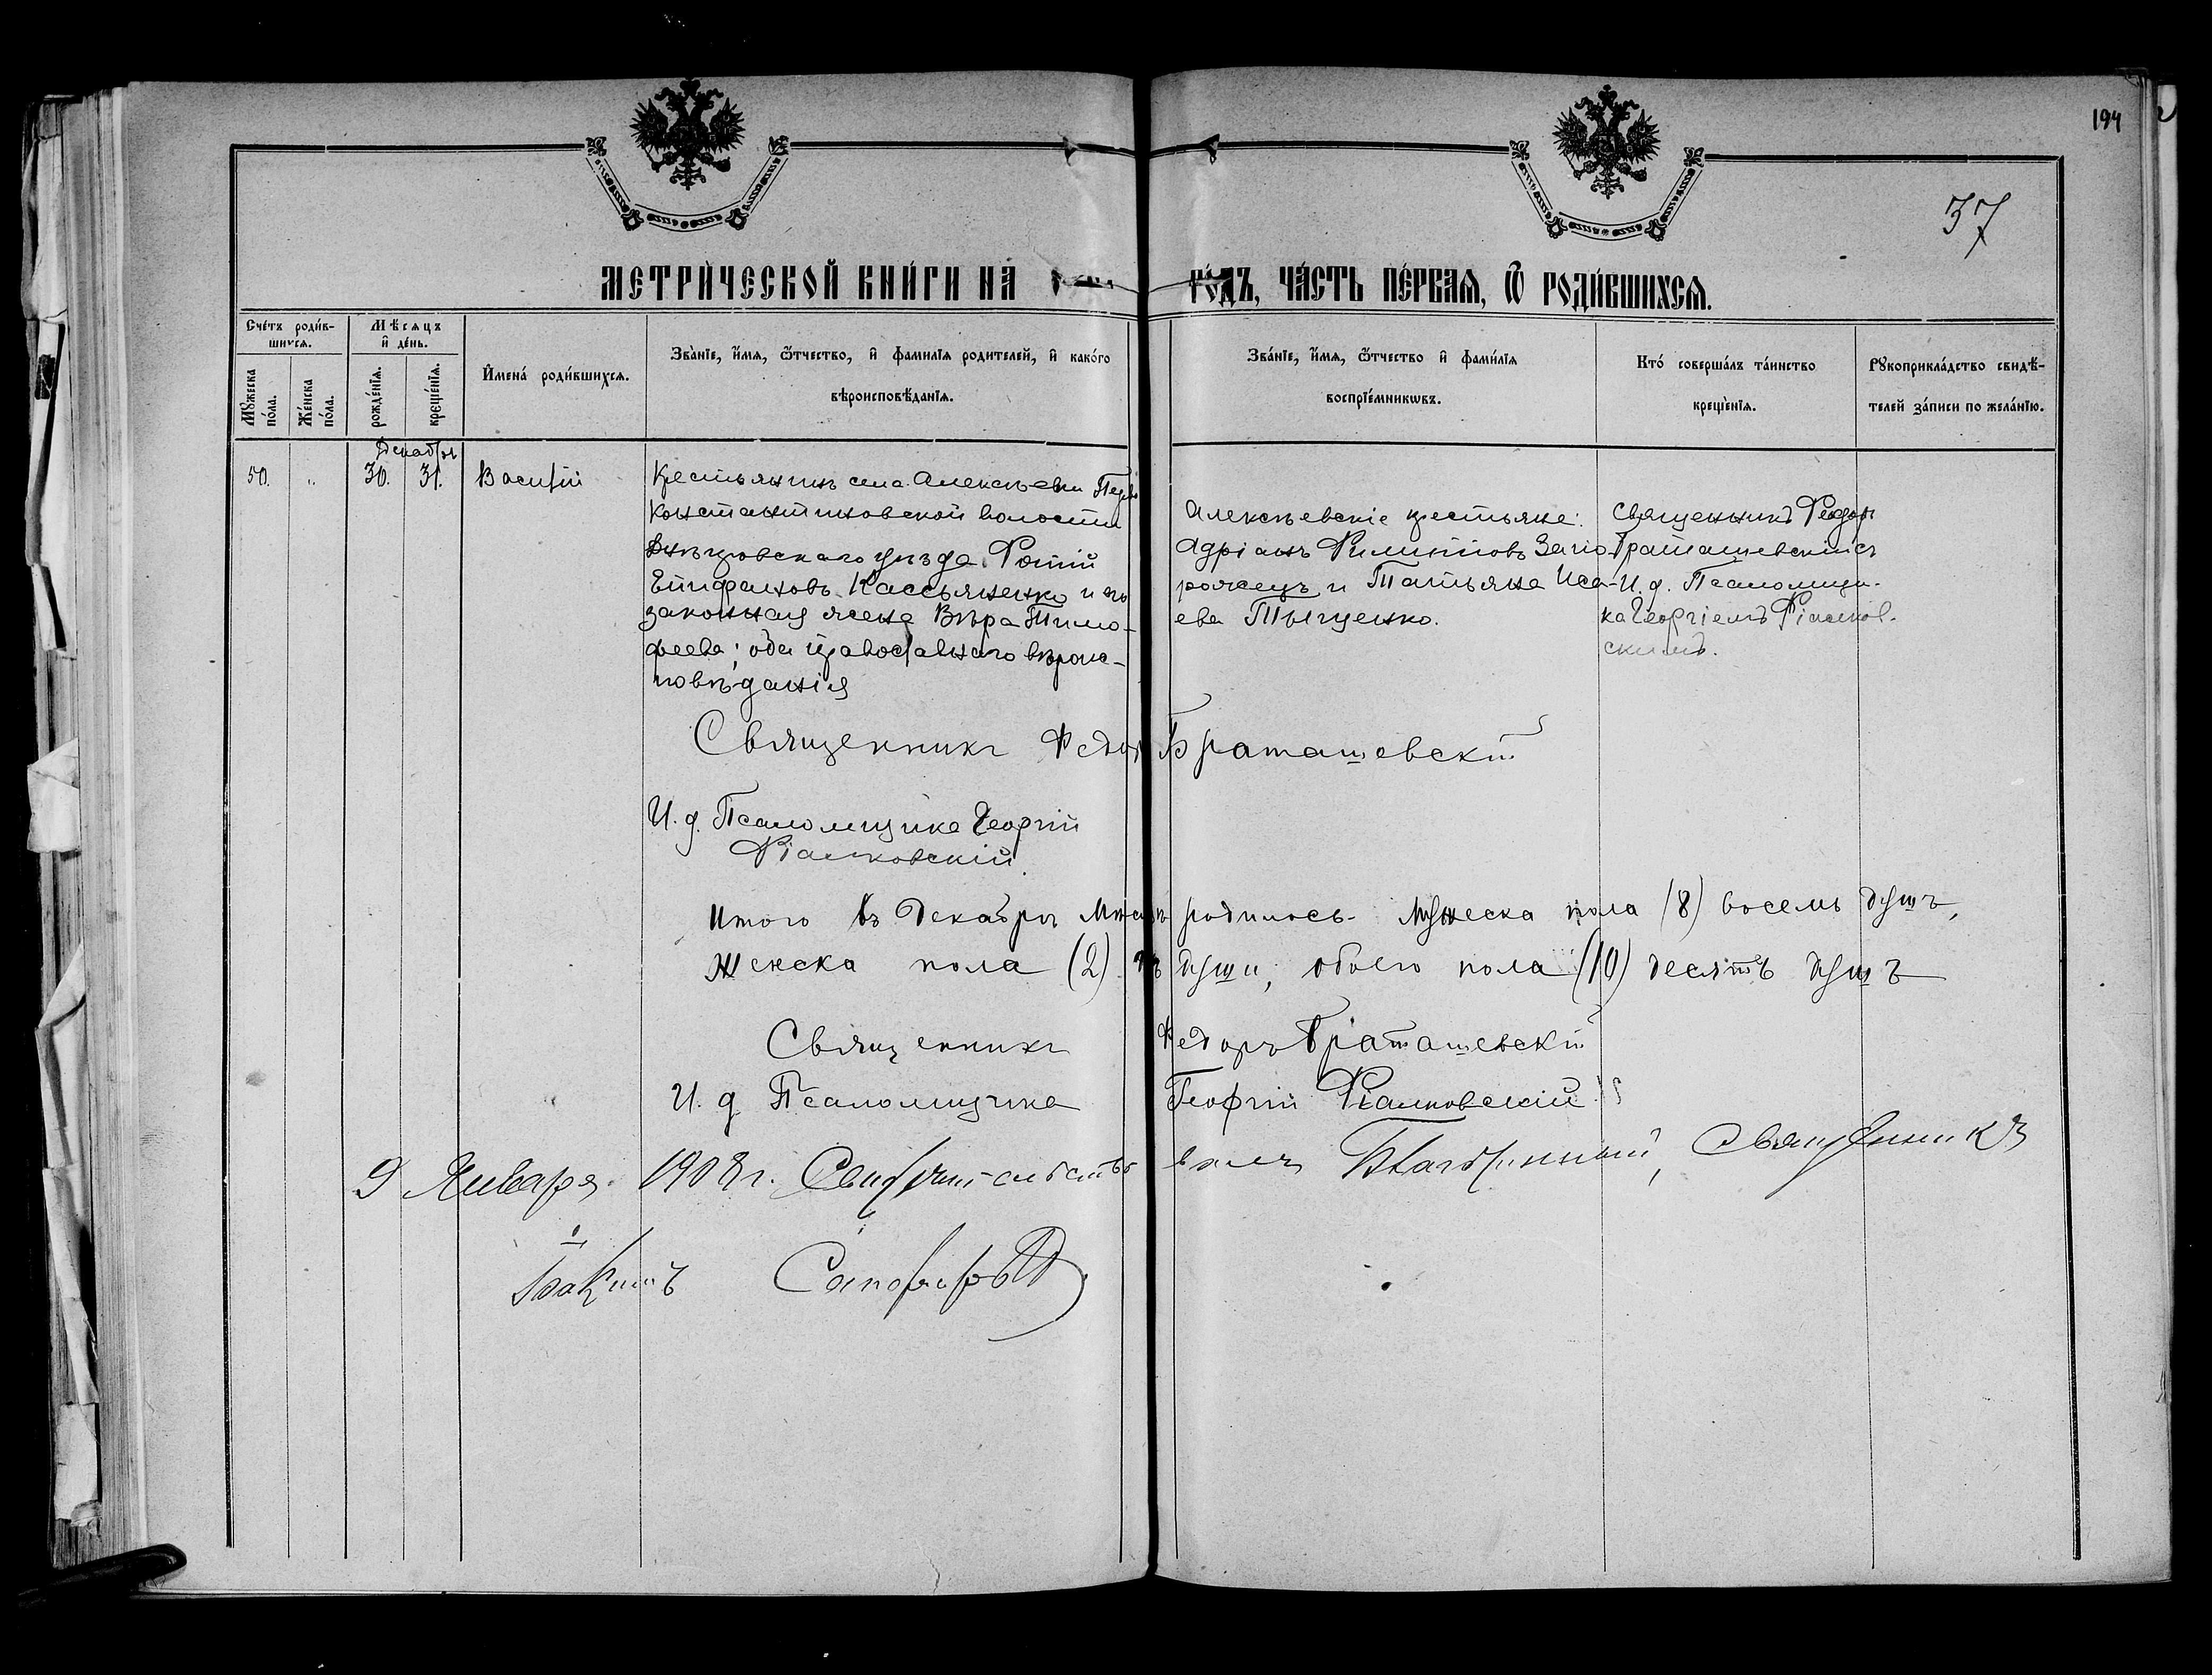 194
37
МЕТРИЧЕСКОЙ КНИГИ НА ГОДЪ, ЧАСТЬ ПЕРВАЯ, Ѿ РОДИВШИХСЯ.
Счетъ родившихся.
Мужеска пола.
Женска пола.
Мѣсяцъ и день.
рожденія.
крещенія.
Имена родившихся.
Званіе, имя, ѿтчество, и фамилія родителей, и какого
вѣроисповѣданія.
Званіе, имя, ѿтчество и фамилія
воспріемникѡвъ.
Кто совершалъ таинство
крещенія.
Рукоприкладство свидѣ-
телей записи по желанію.
Декабрь
50. " 30. 31. Василій
Крестьянинъ села Алексѣевки
Константиновской волости
уѣзда Фотій
Епифановъ Кассьяненко и его
законная жена Вѣра Тимо-
феева; оба православнаго вѣроис-
повѣданія
Алексѣевскіе крестьяне:
Адріанъ Филиповъ Запо-
рожецъ и Татьяна Иса-
ева Тыщенко.
Священникъ Феодоръ
Браташевскій съ
И. д. Псаломщи-
ка Георгіемъ Фіалков-
скимъ.
Священникъ Федоръ Браташевскій
И. д. Псаломщика Георгій
Фіалковскій.
Итого въ Декабрѣ Мѣсяцѣ родилось Мужеска пола (8) восемь душъ,
Женска пола (2) двѣ души, обоего пола (10) десять душъ
Священникъ Федоръ Браташевскій
И. д Псаломщика Георгій Фіалковскій
9 Января 1908 г. Свидѣтельствовалъ Благочинный, Священникъ
Сапфировъ